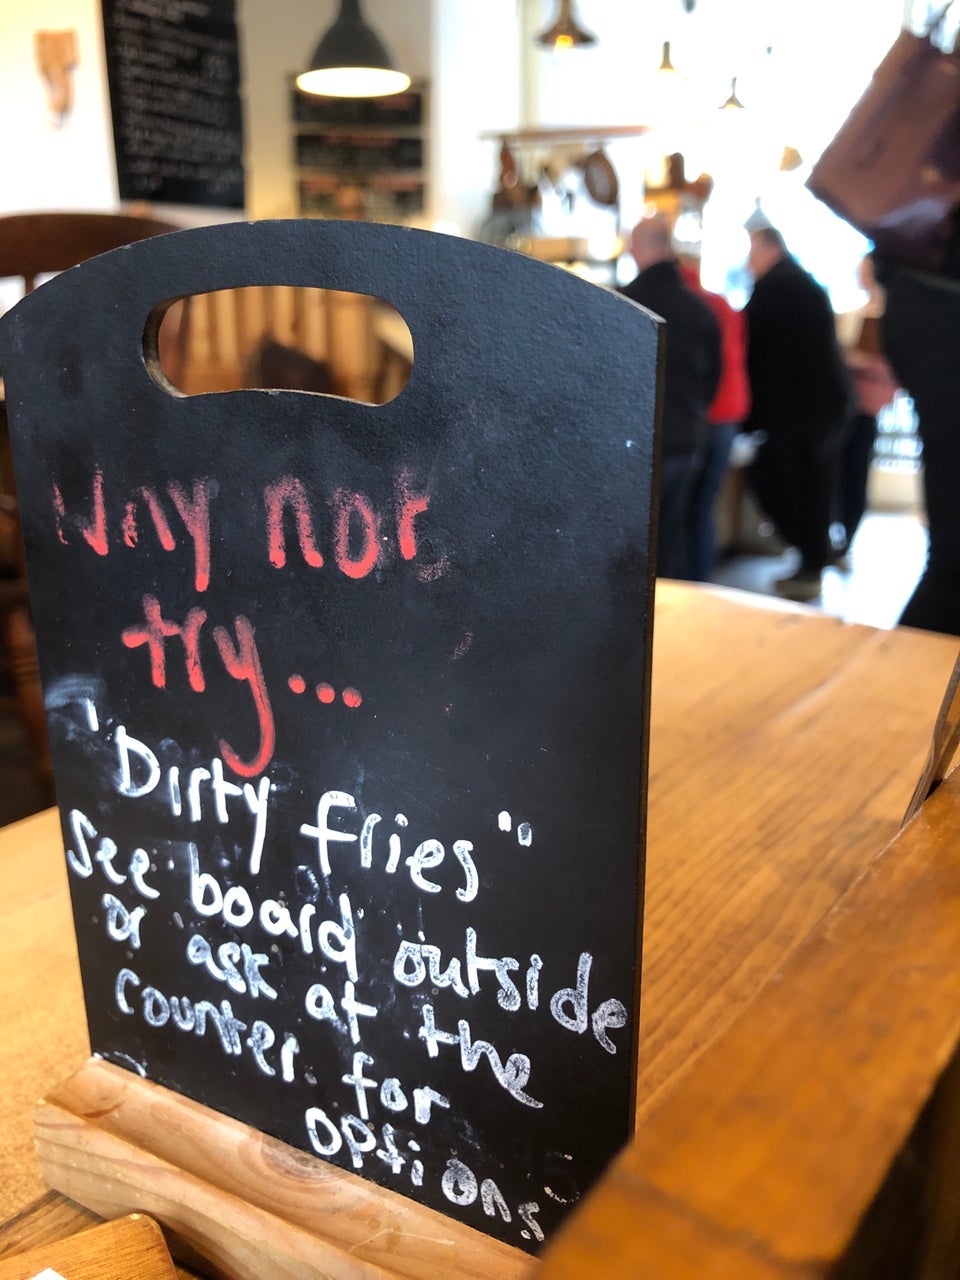 Why not
try...
"Dirty fries"
See board outside
or ask at the
counter for
options